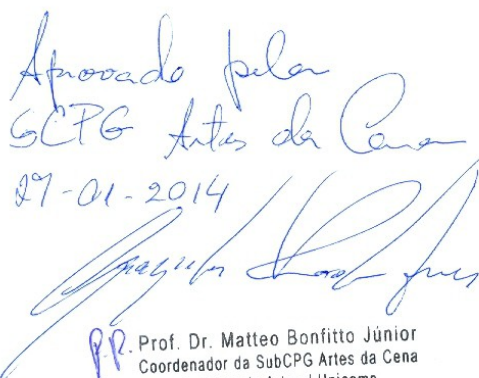 Aprovado pela
SCPG Artes da Cena
27-01-2014
P.P. Prof. Dr. Matteo Bonfitto Júnior
Coordenador da SubCPG Artes da Cena